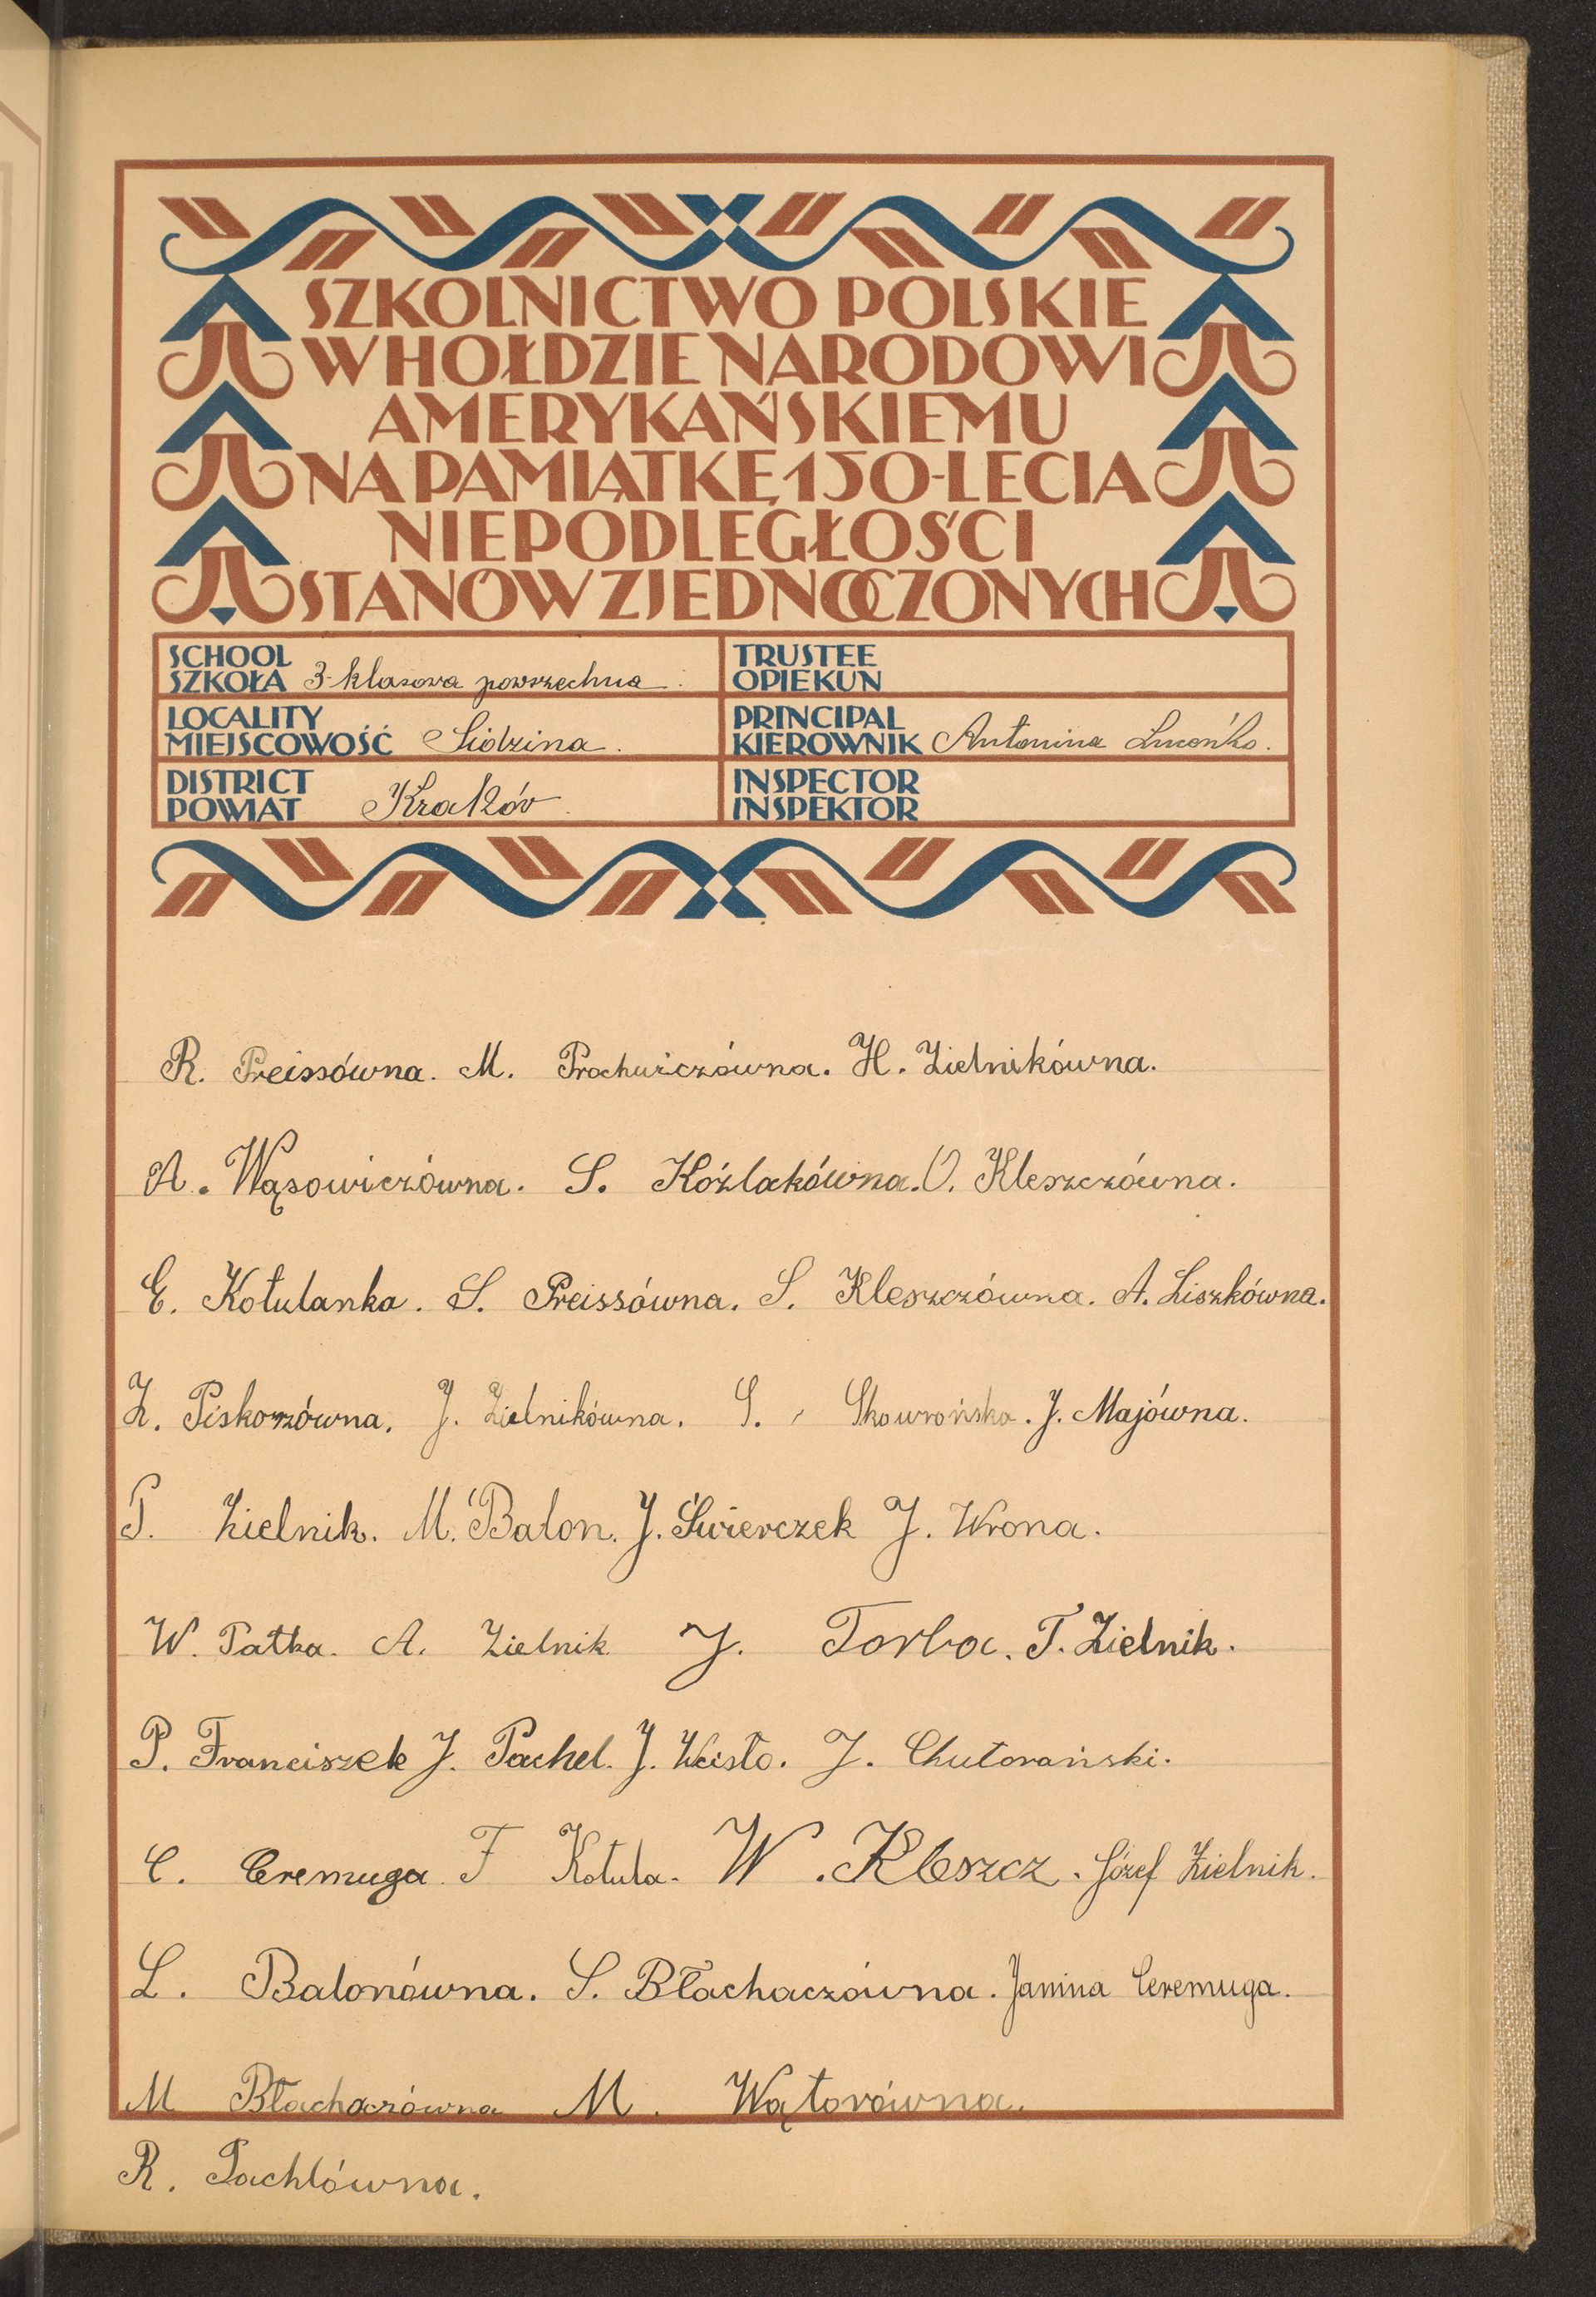 SZKOLNICTWO POLSKIE
W HOŁDZIE NARODOWI
AMERYKAŃSKIEMU
NA PAMIĄTKĘ 150-LECIA
NIEPODLEGŁOŚCI
STANÓW ZJEDNOCZONYCH
SCHOOL
SZKOŁA 3-klasowa powszechna.
TRUSTEE
OPIEKUN
LOCALITY
MIEJSCOWOŚĆ Sidzina.
PRINCIPAL
KIEROWNIK Antonina
DISTRICT
POWIAT Kraków.
INSPECTOR
INSPEKTOR
R. Preissówna. M. H. Zielnikówna.
A. Wąsowiczówna. S. Koźlakówna. O. Kleszczówna.
E. Kotulanka. S. Preissówna. S. Kleszczówna. A. Liszkówna.
Z. Piskorzówna. J. Zielnikówna. S. Skowrońska. J. Majówna.
P. Zielnik. M. Balon. J. Świerczek J. Wrona.
W. Patka. A. Zielnik J. Torba. T. Zielnik.
P. Franciszek J. Pachel. J. Wcisło. J. Chutorański.
C. Ceremuga F Kotula. W. Kleszcz. Józef Zielnik.
L. Balonówna. S. Błachaczówna. Janina Ceremuga.
M Błachaczówna M. Wątorówna.
R. Pachlówna.